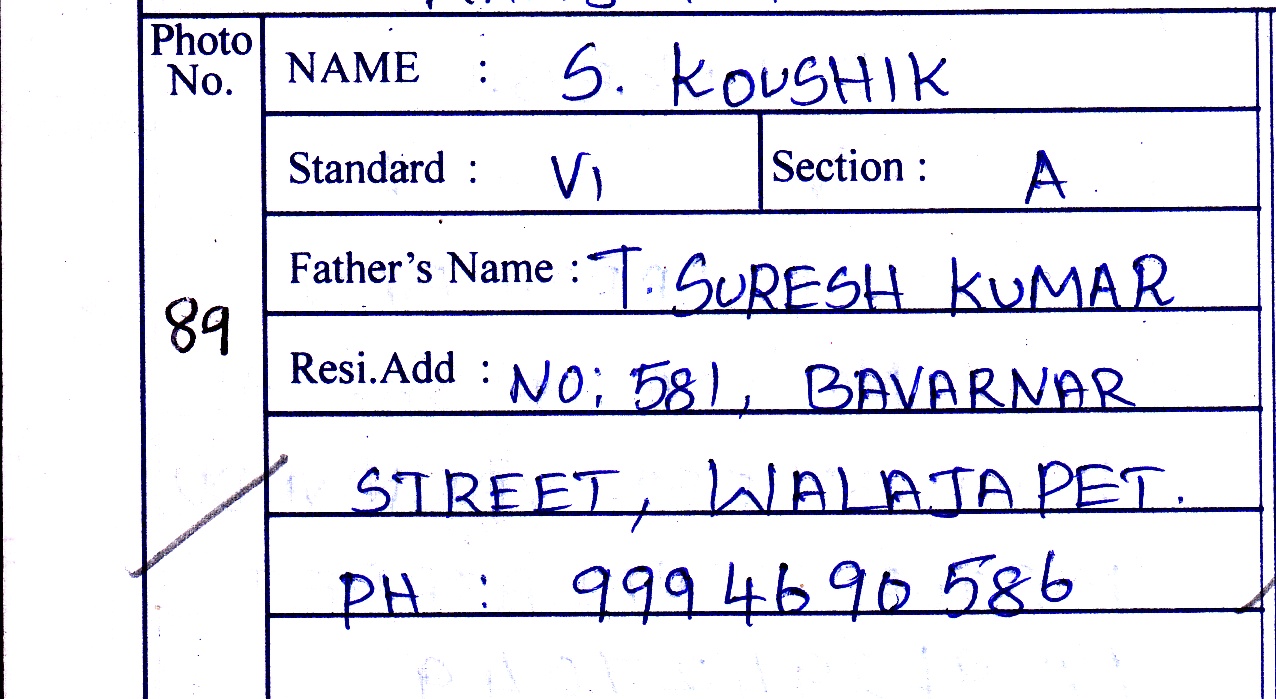 Photo No.
NAME : S. KOUSHIK
Standard : VI Section : A
Father's Name : T. SURESH KUMAR
89
Resi.Add : NO: 581, BAVARNAR
STREET, WALAJAPET.
PH : 9994690586